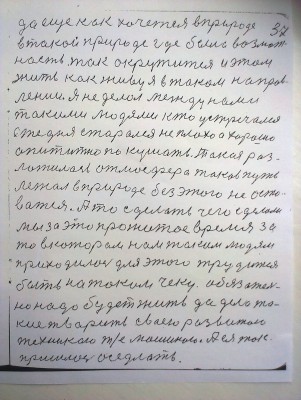 да еще как хочется в природе 37
в такой природе где была возмож
ность так окрутится и этом
жить как живу я в таком направ
лении. Я не делал между нами
такими людями кто устречался
с тедня старался не плохо а хорошо
опититно покушать. Такая раз
ложилась атмосфера такой путь
летал в природе без этого не оста
ватся. А то сделать чего сделали
мы за это прожитое время за
то в котором нам таким людям
приходилось для этого трудится
быть на таком чеку. обязатель
но надо будет жить да дело та
кие творить своего развитого
техникаю т/е машиною. А ея так
пришлось оседлать.